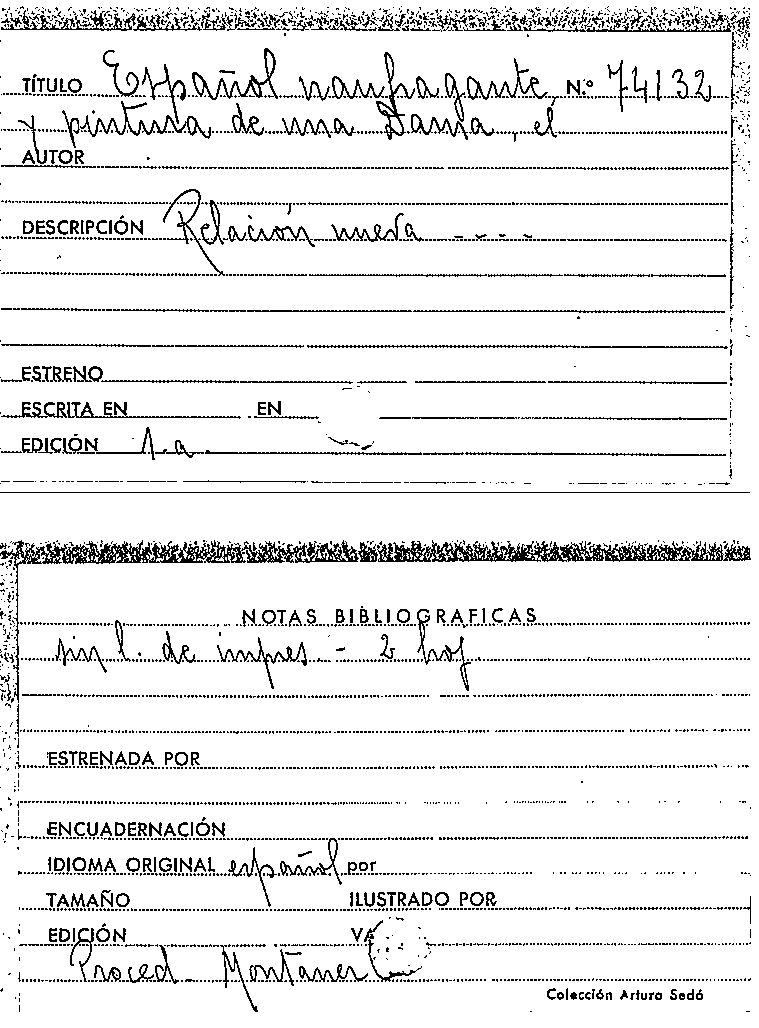 TÍTULO Español naufragante N.º 74132
y pintura de una Dama, el
AUTOR
DESCRIPCIÓN Relación nueva ----
ESTRENO
ESCRITA EN EN
EDICIÓN 1.a.
NOTAS BIBLIOGRAFICAS
sin l. de impres. - 2 hoj
ESTRENADA POR
ENCUADERNACIÓN
IDIOMA ORIGINAL español por
TAMAÑO ILUSTRADO POR
EDICIÓN
Proced. Montaner
Colección Arturo Sedó